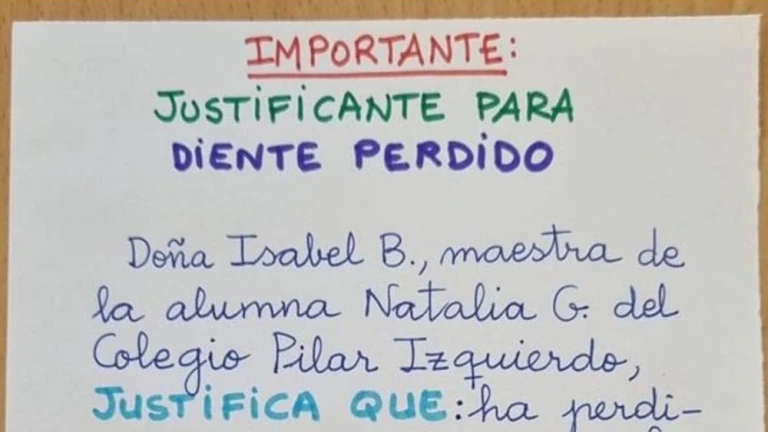 IMPORTANTE:
JUSTIFICANTE PARA
DIENTE PERDIDO
Doña Isabel B., maestra de
la alumna Natalia G. del
Colegio Pilar Izquierdo,
JUSTIFICA QUE: ha perdi-